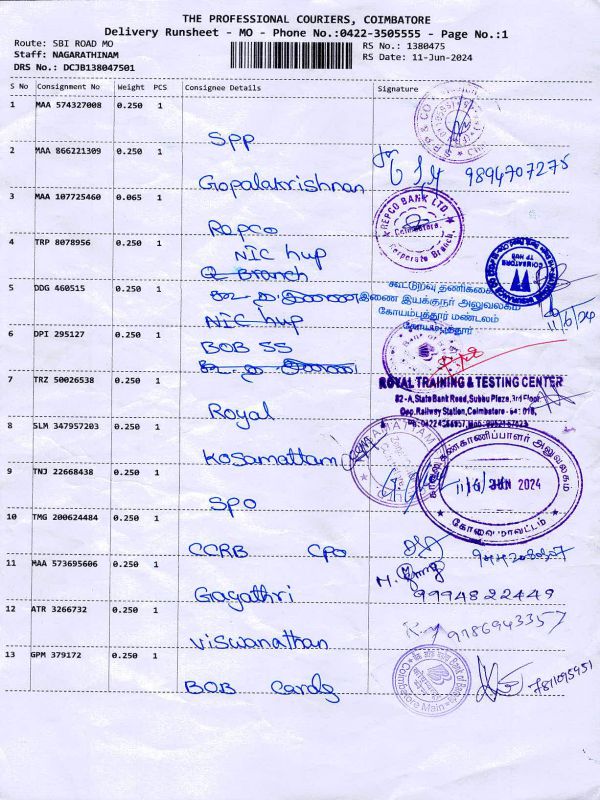 THE PROFESSIONAL COURIERS, COIMBATORE
Delivery Runsheet - MO - Phone No.:0422-3505555 - Page No.:1
Route: SBI ROAD MO
RS No.: 1380475
Staff: NAGARATHINAM
RS Date: 11-Jun-2024
DRS No.: DCJB138047501
S No Consignment No Weight PCS Consignee Details Signature
1 MAA 574327008 0.250 1
SPP
2 MAA 866221309 0.250 1
9894707275
Gopalakrishnan
3 MAA 107725460 0.065 1
REPCO BANK LTD.
Coimbatore.
Corporate Branch.
Repco
4 TRP 8078956 0.250 1
NIC hup
COIMBATORE
TP HUB
Branch
5 DDG 460515 0.250 1
கூட்டுறவு தணிக்கை
இணை இயக்குநர் அலுவலகம்
கோயம்புத்தூர் மண்டலம்
கோயம்புத்தூர்
11/6/24
NIC hup
6 DPI 295127 0.250 1
BOB SS
7 TRZ 50026538 0.250 1
ROYAL TRAINING & TESTING CENTER
82-A, State Bank Road, Subbu Plaza, 3rd Floor
Opp. Railway Station, Coimbatore - 641 018,
Royal
8 SLM 347957203 0.250 1
Kosamattam
காவல் கண்காணிப்பாளர் அலுவலகம்
JUN 2024
கோவை மாவட்டம்
9 TNJ 22668438 0.250 1
SPO
10 TMG 200624484 0.250 1
CCRB CPO
11 MAA 573695606 0.250 1
9994822449
Gagathri
12 ATR 3266732 0.250 1
9786943357
Viswanathan
13 GPM 379172 0.250 1
Coimbatore Main
7811095951
BOB Cards